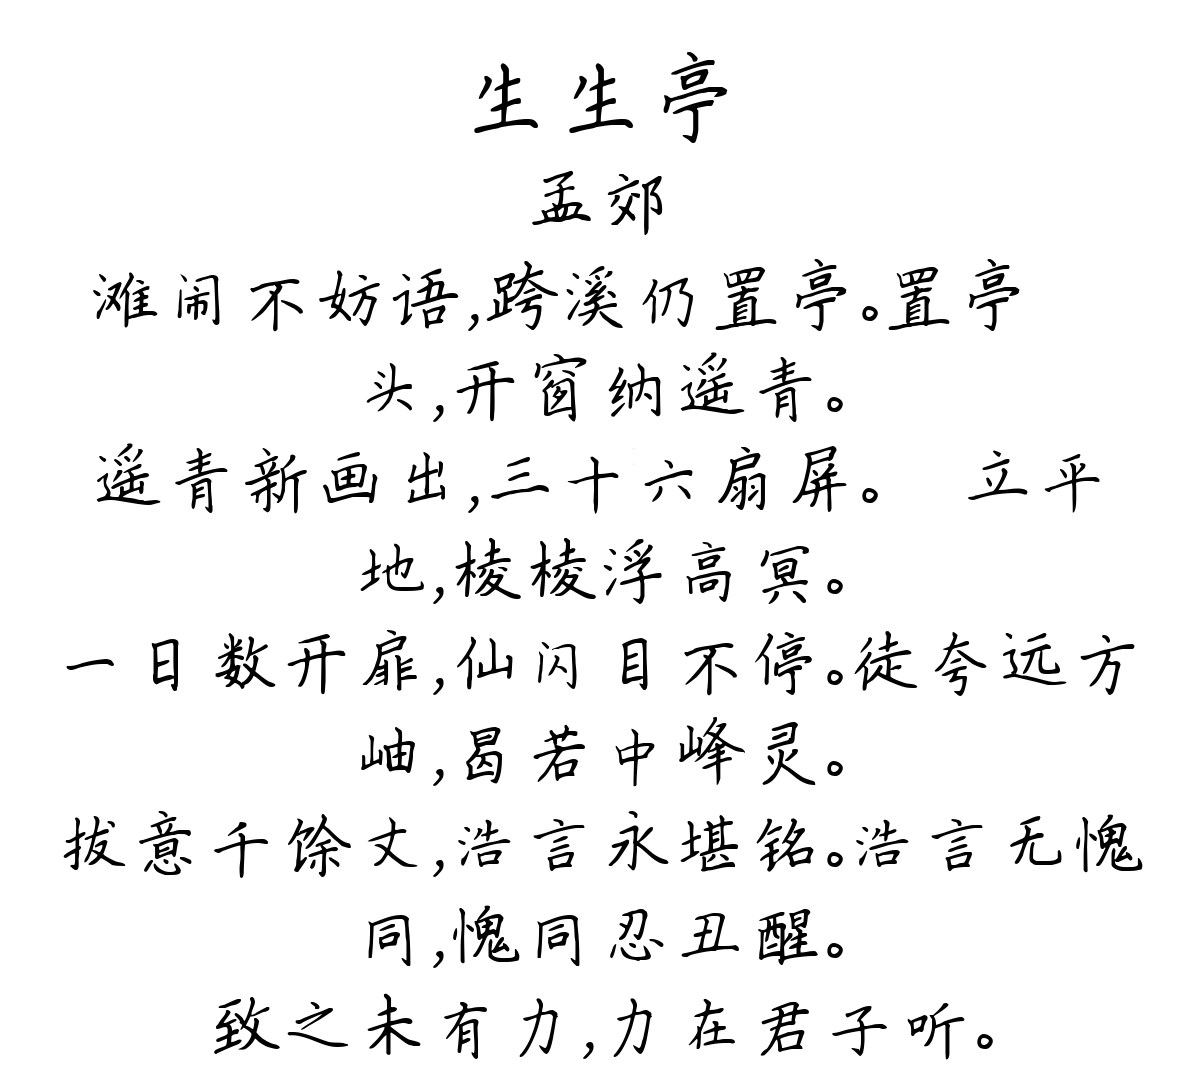 生生亭
孟郊
滩闹不妨语,跨溪仍置亭。置亭
头,开窗纳遥青。
遥青新画出,三十六扇屏。 立平
地,棱棱浮高冥。
一日数开扉,仙闪目不停。徒夸远方
岫,曷若中峰灵。
拔意千馀丈,浩言永堪铭。浩言无愧
同,愧同忍丑醒。
致之未有力,力在君子听。